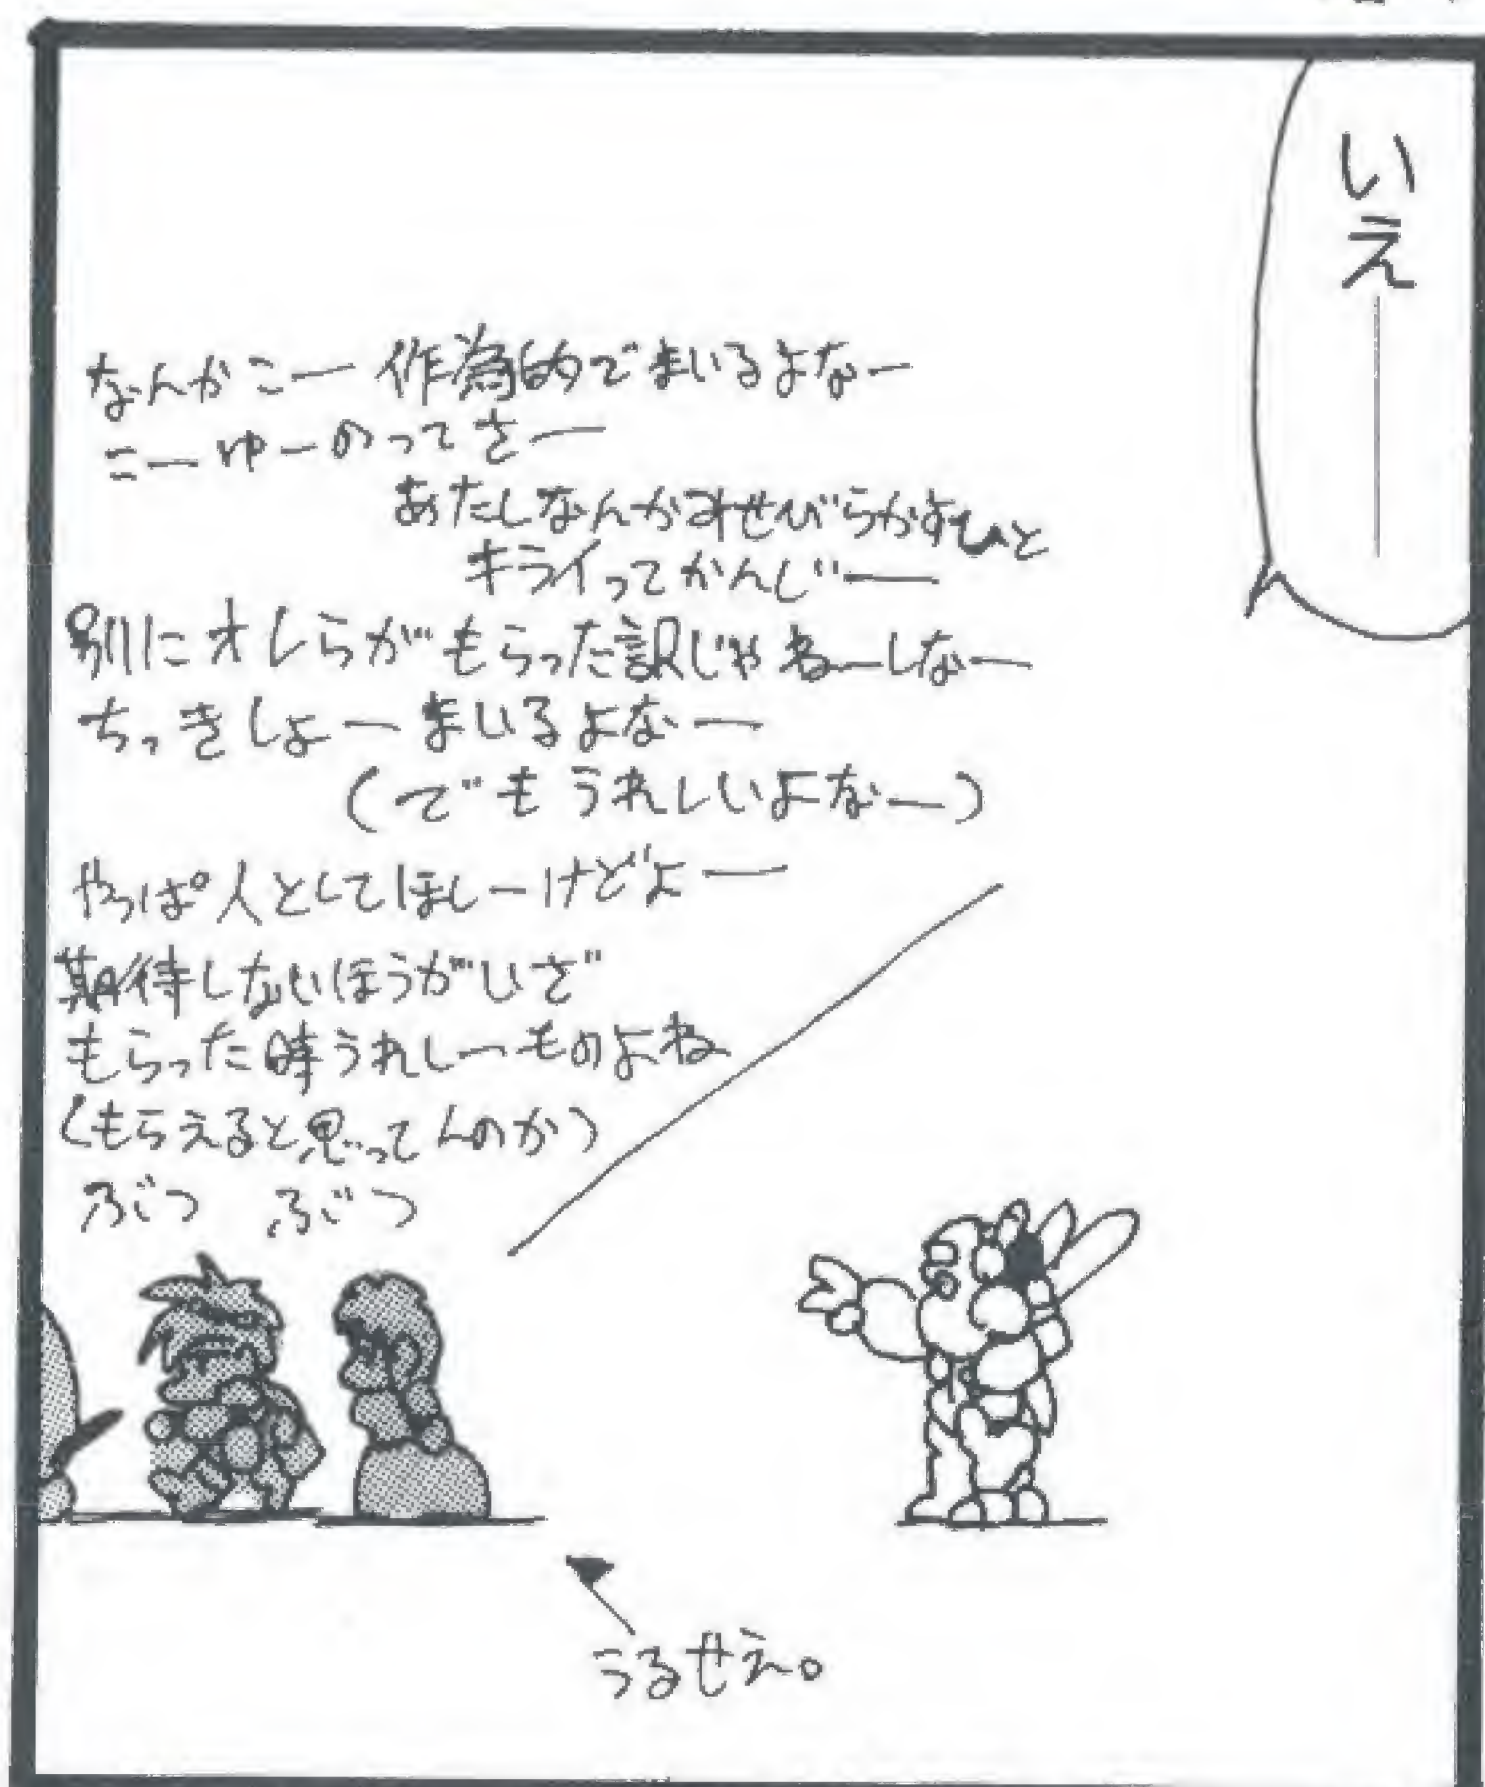 いえ――――
なんかこー作為的でまいるよなー
こーゆーのってさー
あたしなんかみせびらかすひと
キライってかんじー
別にオレらがもらった訳じゃねーしなー
ちっきしょーまいるよなー
(でもうれしいよなー)
やっぱ人としてほしーけどよー
期待しないほうがいざ
もらった時うれしーものよね
(もらえると思ってんのか)
ぶつ ぶつ
うるせえ。